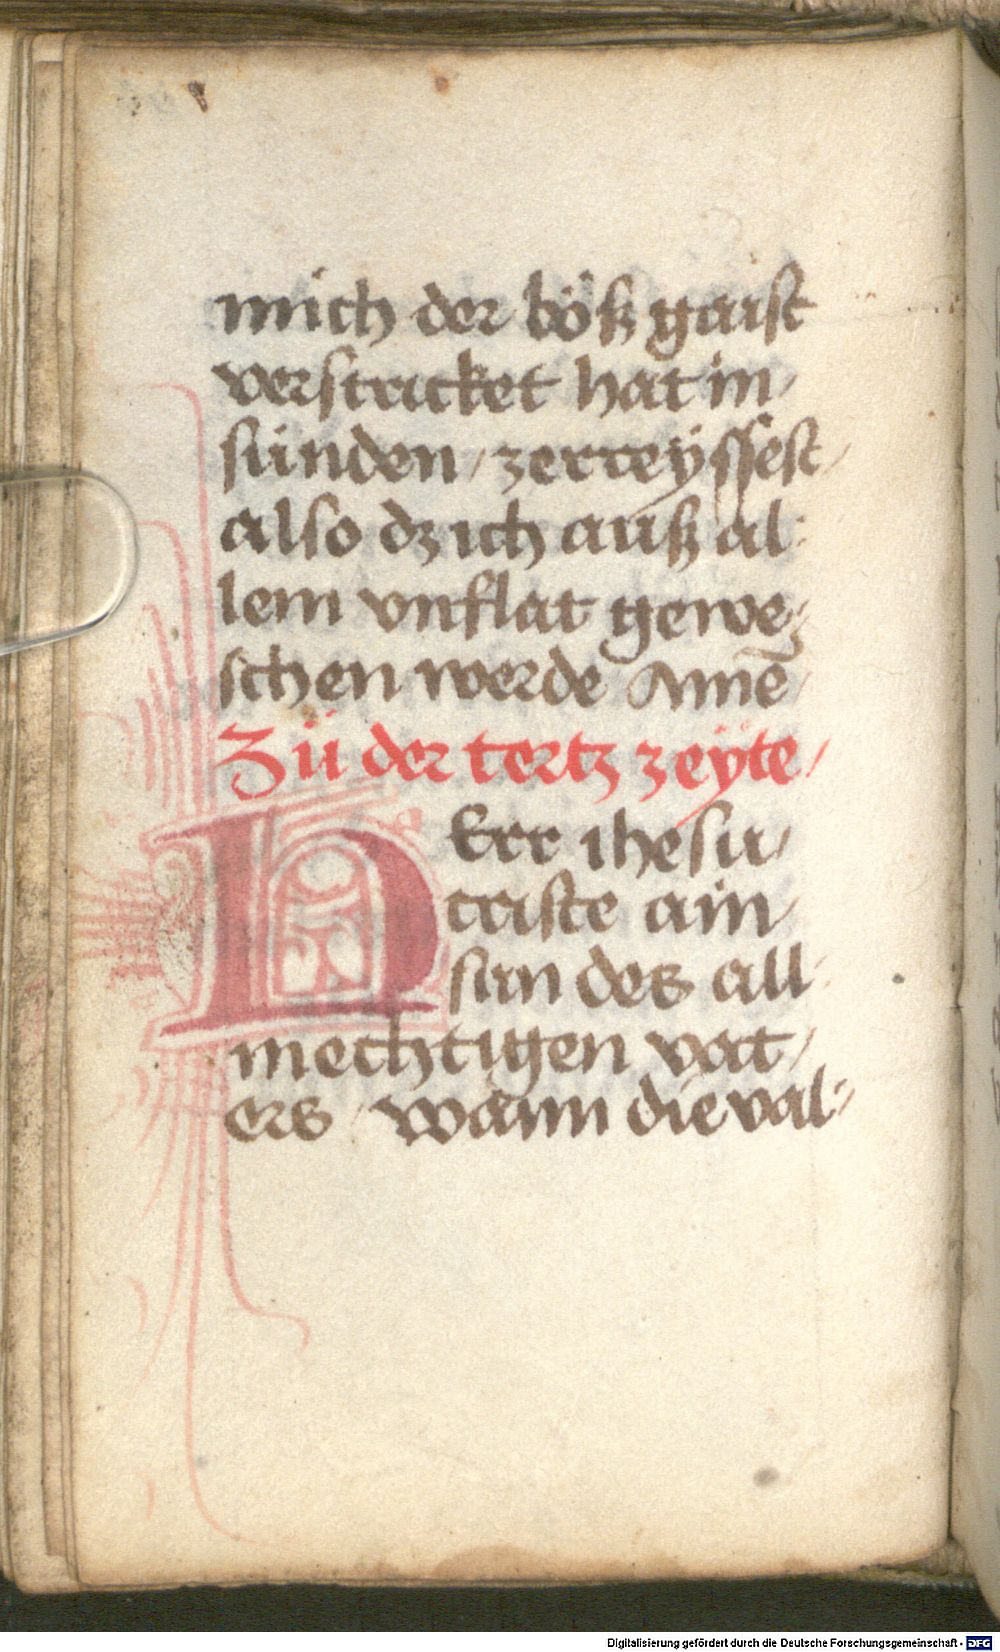 mich der böß gaist
verstricket hat in
sünden / zerreyssest /
also dz ich auß al:
lem vnflat gewe:
schen werde Amē
Zů der tertz zeyte /
HErr ihesu /
criste ain /
sun des all
mechtigen vat /
ers / wann die val:
Digitalisierung gefördert durch die Deutsche Forschungsgemeinschaft - DFG